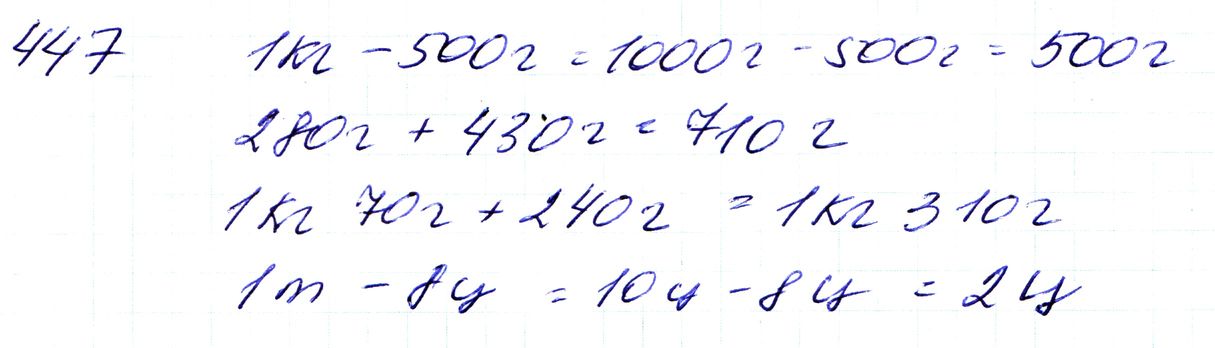 447 1кг - 500г = 1000г - 500г = 500г
280г + 430г = 710 г
1кг 70г + 240г = 1кг 310г
1т - 8ц = 10ц - 8ц = 2ц